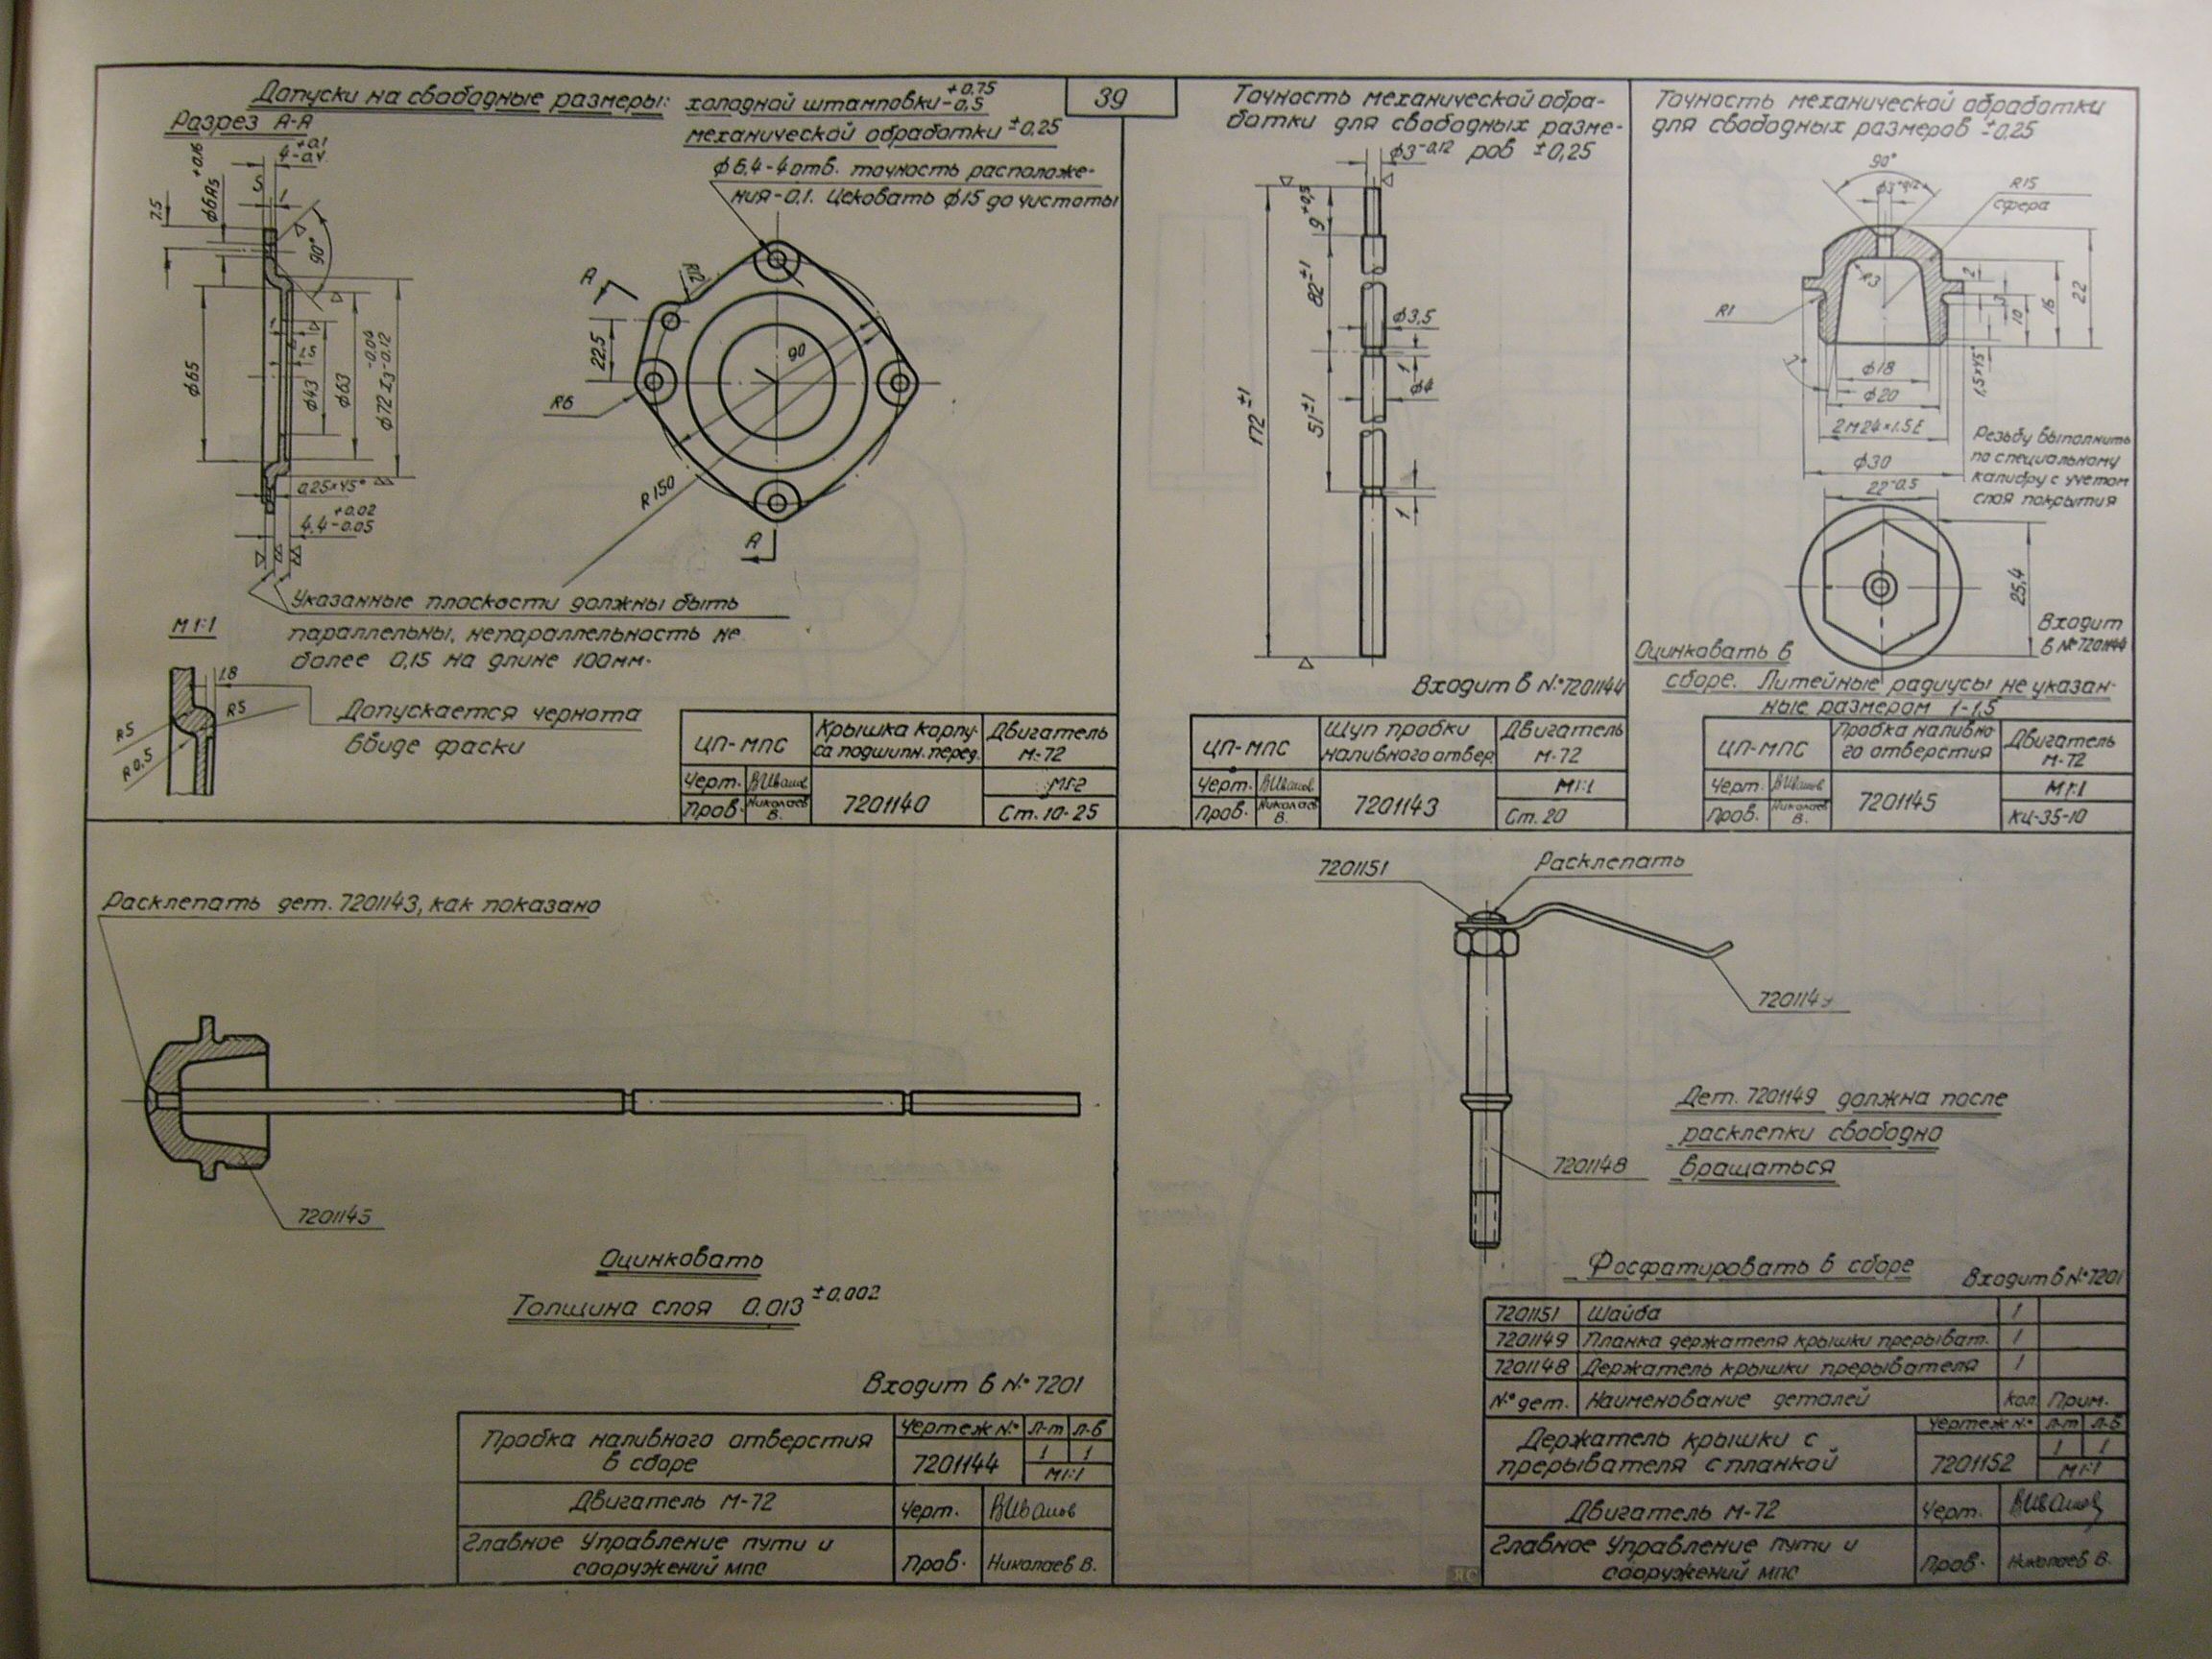 39
Допуски на свободные размеры: холодной штамповки +0,75 -0,5
механической обработки ±0,25
Разрез А-А
ϕ6,4-4 отв. точность расположе-
ния-0,1. Цековать ϕ15 до чистоты
4 +0,1 -0,4
5
1
7,5
ϕ6A5 +0,16
90°
ϕ65
ϕ43
ϕ63
ϕ72 X3 -0.06 -0.12
0,25×45°
4,4 +0.02 -0.05
А
R12
22,5
90
R6
R150
А
Указанные плоскости должны быть
параллельны, непараллельность не
более 0,15 на длине 100мм.
М 1:1
1,8
R5
R5
R0,5
Допускается чернота
ввиде фаски
ЦП-МПС
Крышка корпу-
са подшипн. перед.
Двигатель
М-72
Черт. ВИванов
М1:2
Пров. Николаев В.
7201140
Ст. 10-25
Точность механической обра-
ботки для свободных разме-
ров ±0,25
ϕ3-0,12
9+0,5
82±1
ϕ3,5
1
ϕ4
172±1
51±1
1
Входит в №7201144
ЦП-МПС
Щуп пробки
наливного отвер.
Двигатель
М-72
Черт. ВИванов
М1:1
Пров. Николаев В.
7201143
Ст. 20
Точность механической обработки
для свободных размеров ±0,25
90°
ϕ3+0,12
R15
сфера
R3
R1
2
3
10
16
22
7°
1,5×45°
ϕ18
ϕ20
2М24×1.5Е
ϕ30
Резьбу выполнить
по специальному
калибру с учетом
слоя покрытия
22-0,5
25,4
Входит
в №7201144
Оцинковать в
сборе. Литейные радиусы не указан-
ные размером 1-1,5
ЦП-МПС
Пробка наливно-
го отверстия
Двигатель
М-72
Черт. ВИванов
М1:1
Пров. Николаев В.
7201145
КЦ-35-10
Расклепать дет. 7201143, как показано
7201145
Оцинковать
Толщина слоя 0.013 ±0.002
Входит в №7201
Пробка наливного отверстия
в сборе
Чертеж № л-т л-в
7201144
1 1
М1:1
Двигатель М-72
Черт. ВИванов
Главное Управление пути и
сооружений МПС
Пров. Николаев В.
7201151
Расклепать
7201149
7201148
Дет. 7201149 должна после
расклепки свободно
вращаться
Фосфатировать в сборе
Входит в №7201
7201151 Шайба 1
7201149 Планка держателя крышки прерыват. 1
7201148 Держатель крышки прерывателя 1
№ дет. Наименование деталей кол. Прим.
Держатель крышки с
прерывателя с планкой
Чертеж № л-т л-в
7201152
1 1
М1:1
Двигатель М-72
Черт. ВИванов
Главное Управление пути и
сооружений МПС
Пров. Николаев В.